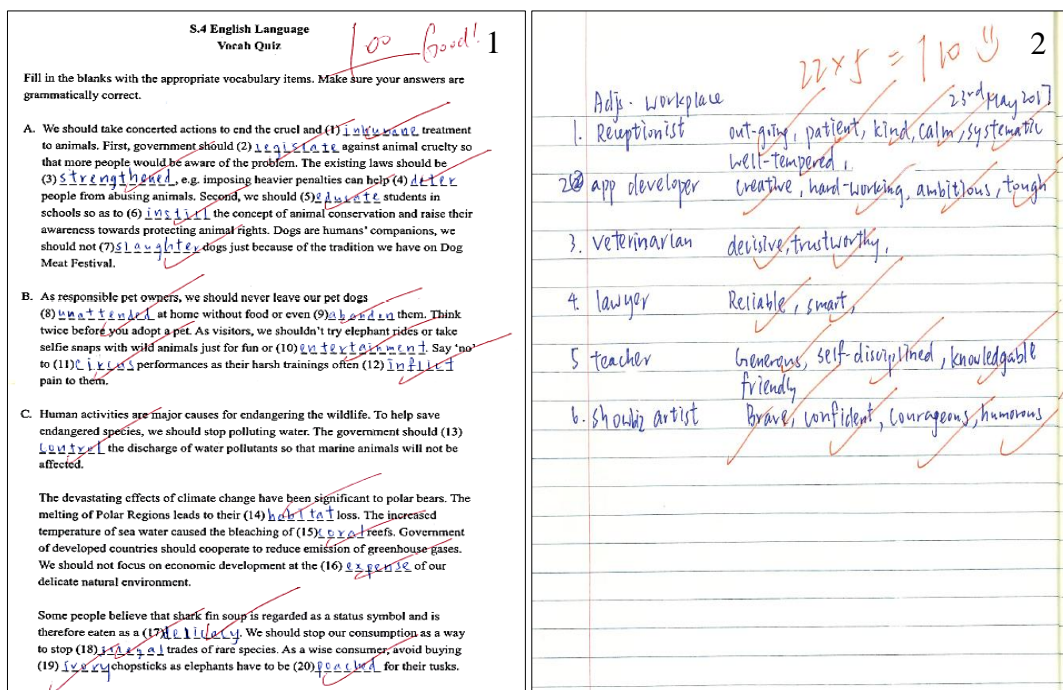 S.4 English Language
Vocab Quiz
100 Good! 1
Fill in the blanks with the appropriate vocabulary items. Make sure your answers are
grammatically correct.
A. We should take concerted actions to end the cruel and (1) inhumane treatment
to animals. First, government should (2) legislate against animal cruelty so
that more people would be aware of the problem. The existing laws should be
(3) strengthened, e.g. imposing heavier penalties can help (4) deter
people from abusing animals. Second, we should (5) educate students in
schools so as to (6) instill the concept of animal conservation and raise their
awareness towards protecting animal rights. Dogs are humans' companions, we
should not (7) slaughter dogs just because of the tradition we have on Dog
Meat Festival.
B. As responsible pet owners, we should never leave our pet dogs
(8) unattended at home without food or even (9) abandon them. Think
twice before you adopt a pet. As visitors, we shouldn't try elephant rides or take
selfie snaps with wild animals just for fun or (10) entertainment. Say 'no'
to (11) circus performances as their harsh trainings often (12) inflict
pain to them.
C. Human activities are major causes for endangering the wildlife. To help save
endangered species, we should stop polluting water. The government should (13)
control the discharge of water pollutants so that marine animals will not be
affected.
The devastating effects of climate change have been significant to polar bears. The
melting of Polar Regions leads to their (14) habitat loss. The increased
temperature of sea water caused the bleaching of (15) coral reefs. Government
of developed countries should cooperate to reduce emission of greenhouse gases.
We should not focus on economic development at the (16) expense of our
delicate natural environment.
Some people believe that shark fin soup is regarded as a status symbol and is
therefore eaten as a (17) delicacy. We should stop our consumption as a way
to stop (18) illegal trades of rare species. As a wise consumer, avoid buying
(19) Ivory chopsticks as elephants have to be (20) poached for their tusks.
22 x 5 = 110 2
23rd May 2017
Adjs - workplace
1. Receptionist out-going, patient, kind, calm, systematic
well-tempered,
2 app developer creative, hard-working, ambitious, tough
3. veterinarian decisive, trustworthy,
4. lawyer Reliable, smart,
5 teacher Generous, self-disciplined, knowledgable
friendly
6. showbiz artist Brave, confident, courageous, humorous